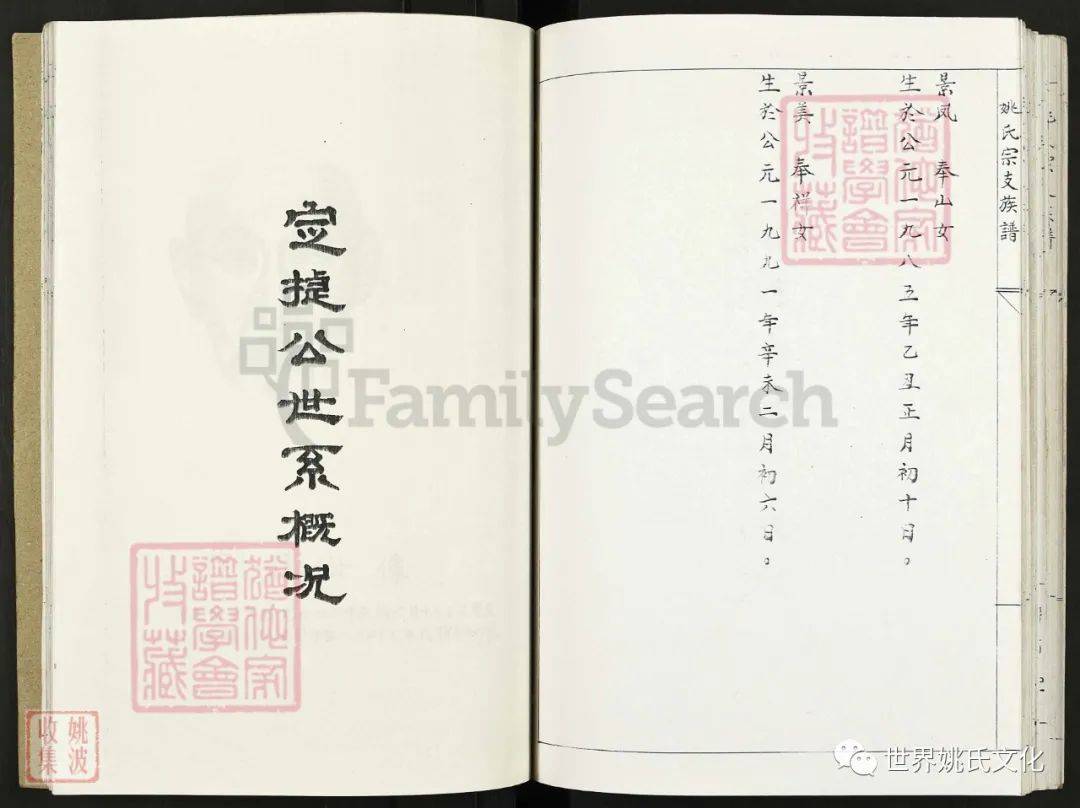 姚氏宗支族譜
景凤 奉山女
生於公元一九八五年乙丑正月初十日。
景美 奉祥女
生於公元一九九一年辛未二月初六日。
定捷公世系概况
譜學會
收藏
姚波
收集
FamilySearch
世界姚氏文化